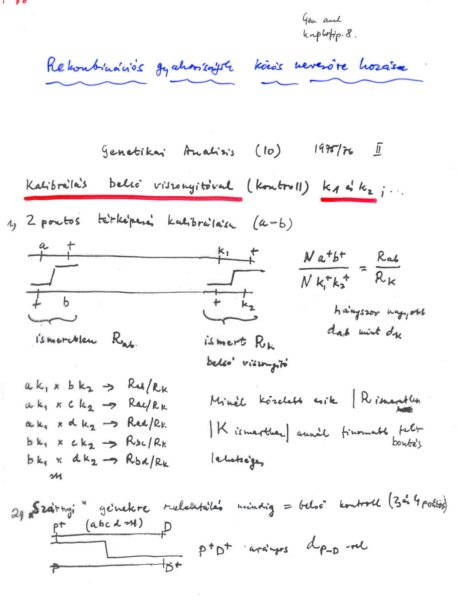 Gen. anal.
Rekombinációs gyakoriságok közös nevezőre hozása
Genetikai Analízis (10) 1975/76 II
Kalibrálás belső viszonyítóval (kontroll) k1 és k2 ; ...
1, 2 pontos térképezés kalibrálása (a-b)
a + k1 +
+ b + k2
N a+b+ / N k1+k2+ = Rab / RK
hányszor nagyobb
dab mint dk
ismeretlen Rab
ismert RK
belső viszonyító
a k1 × b k2 → Rab/RK
a k1 × c k2 → Rac/RK
a k1 × d k2 → Rad/RK
b k1 × c k2 → Rbc/RK
b k1 × d k2 → Rbd/RK
Minél közelebb esik |R ismeretlen
|K ismerthez| annál finomabb felbontás
lehetséges
2, "Szárnyi" génekre szelektálás mindig = belső kontroll (3 és 4 pontos)
p+ (abcd) D
p D+
p+D+ arányos dp-D-vel